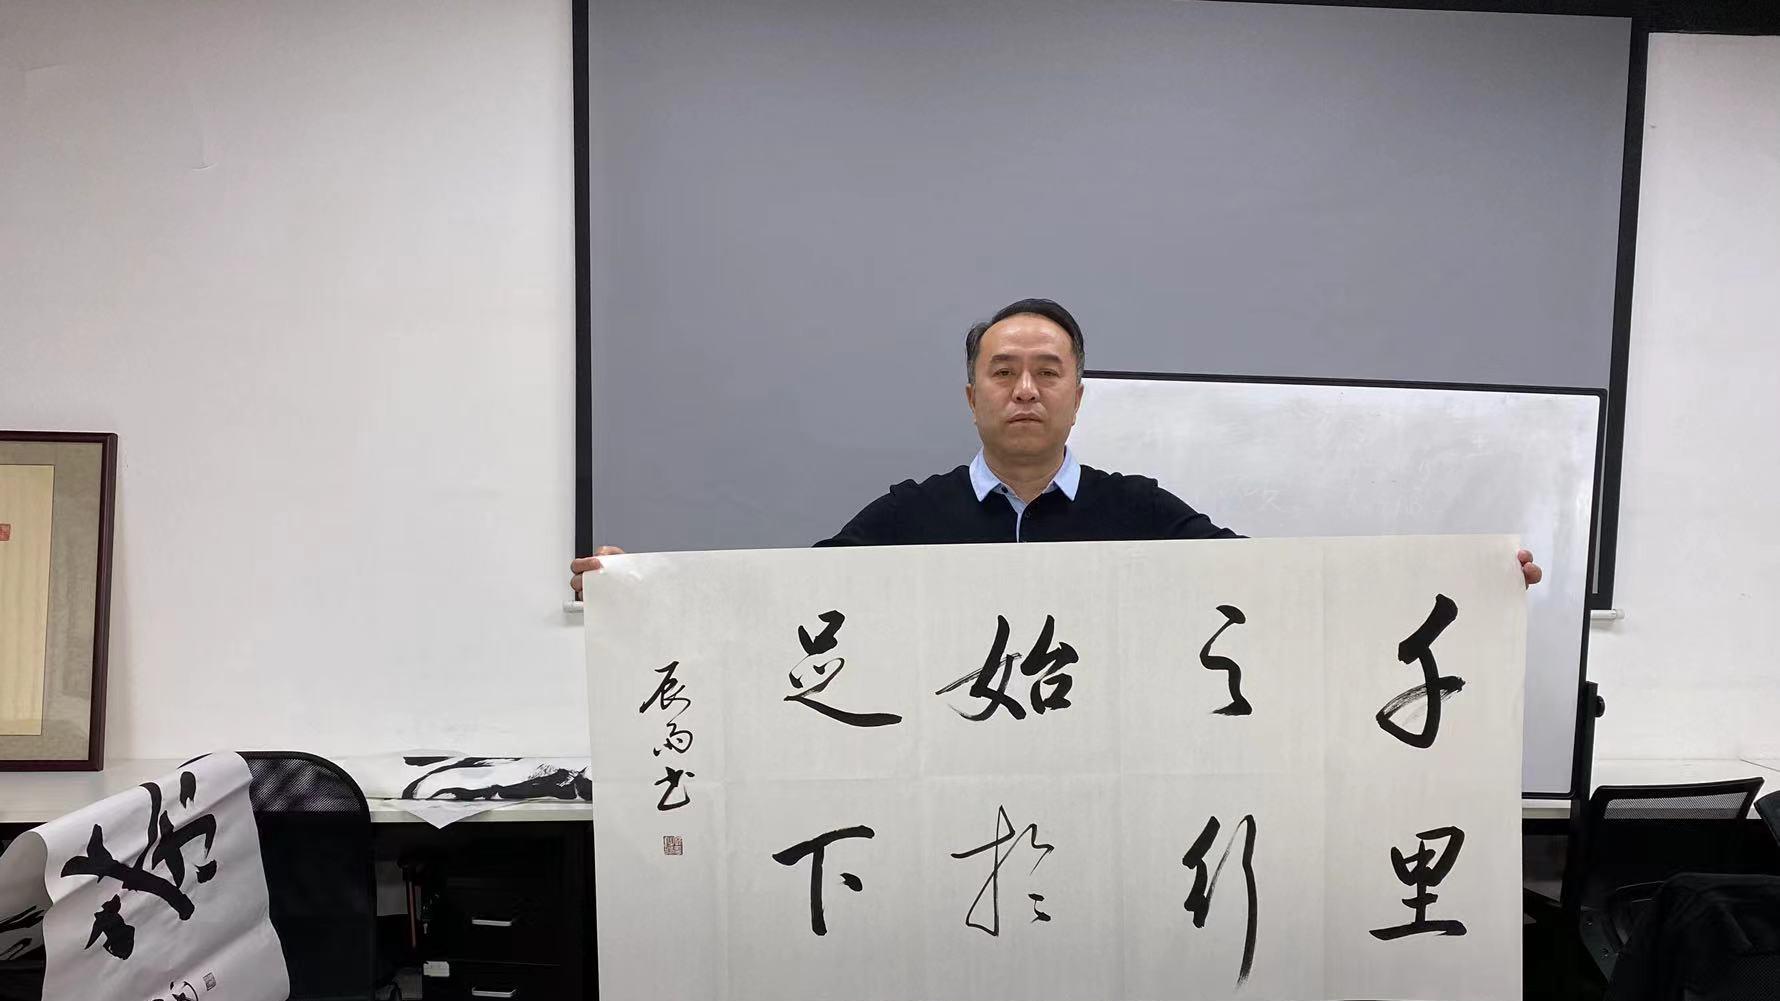 千里
之行
始於
足下
辰雨书